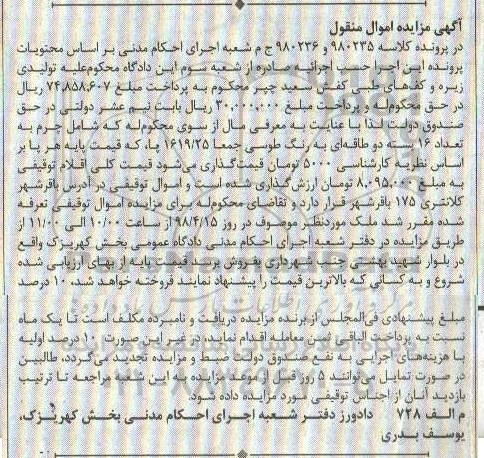 آگهی مزایده اموال منقول
در پرونده کلاسه ۹۸۰۲۳۵ و ۹۸۰۲۳۶ ج م شعبه اجرای احکام مدنی بر اساس محتویات
پرونده امر اجرا حسب اجرائیه صادره از شعبه سوم این دادگاه محکوم‌علیه تولیدی
زیره و کف‌های طبی کفش سعید چیز محکوم به پرداخت مبلغ ۷۴،۸۵۸،۶۰۷ ریال
در حق محکوم‌له و پرداخت مبلغ ۳۰،۰۰۰،۰۰۰ ریال بابت نیم عشر دولتی در حق
صندوق دولت لذا با عنایت به معرفی مال از سوی محکوم‌له که شامل چرم به
تعداد ۱۶ بسته دو طاقه‌ای به رنگ طوسی جمعا ۱۶۱۹/۲۵ پا، که قیمت پایه هر پا بر
اساس نظریه کارشناسی ۵۰۰۰ تومان قیمت‌گذاری می‌شود قیمت کلی اقلام توقیفی
به مبلغ ۸،۰۹۵،۰۰۰ تومان ارزش‌گذاری شده است و اموال توقیفی در آدرس باقرشهر
کلانتری ۱۷۵ باقرشهر قرار دارد و تقاضای محکوم‌له برای مزایده اموال توقیفی تعرفه
شده مقرر شد ملک موردنظر موصوف در روز ۹۸/۴/۱۵ از ساعت ۱۰/۰۰ الی ۱۱/۰۰ از
طریق مزایده در دفتر شعبه اجرای احکام مدنی دادگاه عمومی بخش کهریزک واقع
در بلوار شهید بهشتی جنب شهرداری بفروش برسد قیمت پایه از بهای ارزیابی شده
شروع و به کسانی که بالاترین قیمت را پیشنهاد نمایند فروخته خواهد شد، ۱۰ درصد
مبلغ پیشنهادی فی‌المجلس از برنده مزایده دریافت و نامبرده مکلف است تا یک ماه
نسبت به پرداخت الباقی ثمن معامله اقدام نماید، در غیر این صورت ۱۰ درصد اولیه
با هزینه‌های اجرایی به نفع صندوق دولت ضبط و مزایده تجدید می‌گردد، طالبین
در صورت تمایل می‌توانند ۵ روز قبل از موعد مزایده به این شعبه مراجعه تا ترتیب
بازدید آنان از اجناس توقیفی مورد مزایده داده شود.
م الف ۷۴۸ دادورز دفتر شعبه اجرای احکام مدنی بخش کهریزک،
یوسف بدری